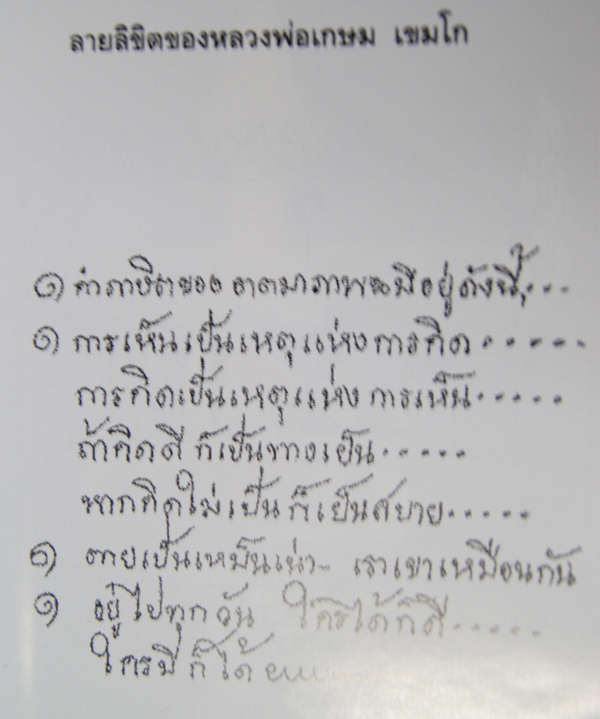 ลายลิขิตของหลวงพ่อเกษม เขมโก
๑ คำภาษิตของ อาตมาภาพ มีอยู่ดังนี้....
๑ การเห็นเป็นเหตุแห่งการคิด......
การคิดเป็นเหตุแห่ง การเห็น.....
ถ้าคิดดี ก็เป็นทางเย็น.....
หากคิดไม่เป็น ก็เป็นสบาย.....
๑ ตายเป็นเหม็นเน่า... เราเขาเหมือนกัน
๑ อยู่ไปทุกวัน ใครได้ก็ดี.....
ใครมี ก็ได้